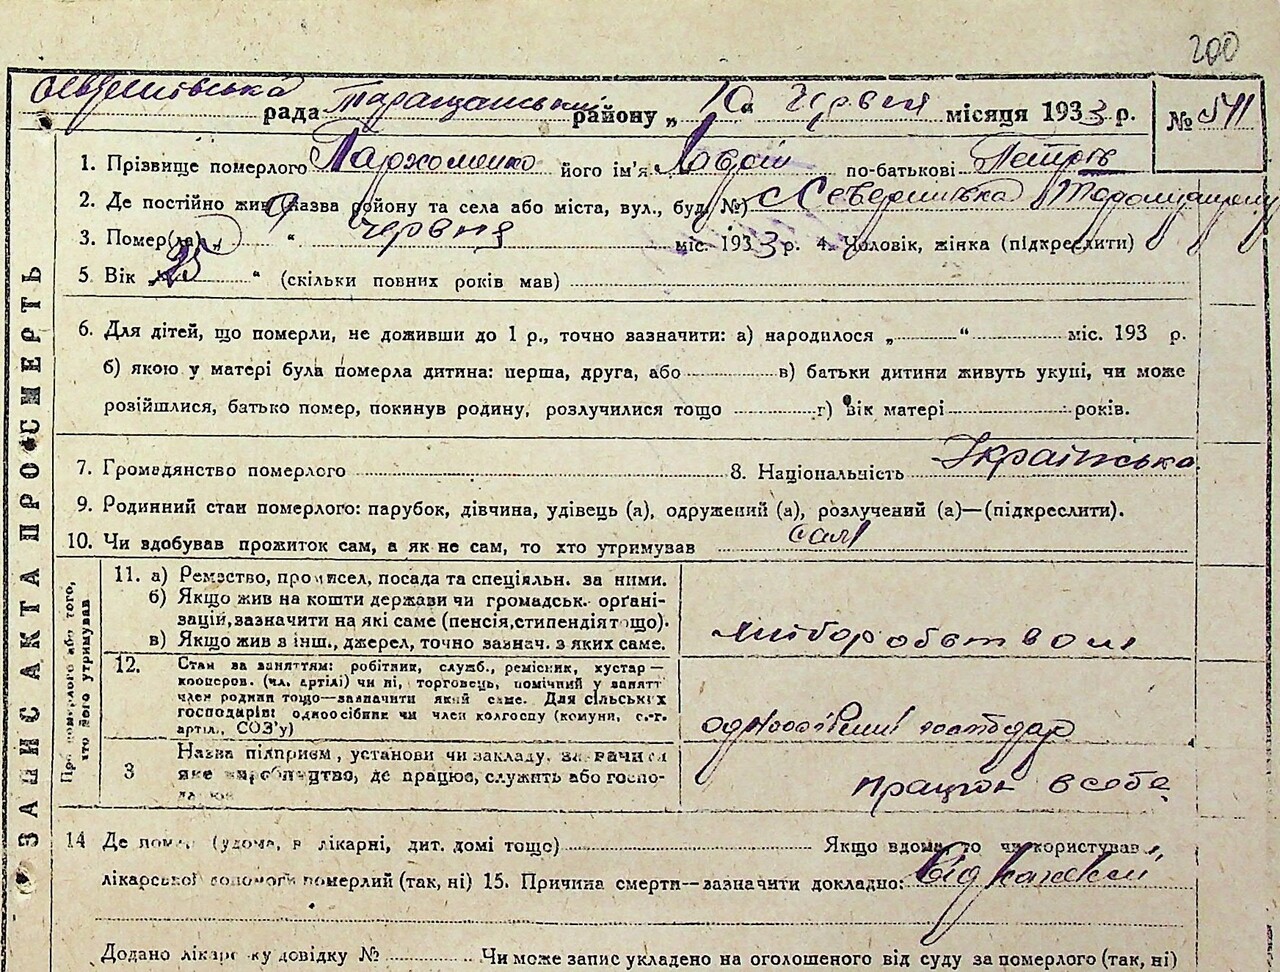 200
рада Таращанський району „10“ червня місяця 1933 р. № 541
1. Прізвище померлого Пархоменко його ім'я по-батькові Петрів
2. Де постійно жив (назва району та села або міста, вул., буд. №)
3. Помер(ла) „9“ червня міс. 1933 р. 4. Чоловік, жінка (підкреслити)
5 Вік 25 “ (скільки повних років мав)
6. Для дітей, що померли, не доживши до 1 р., точно зазначити: а) народилося „ “ міс. 193 р.
б) якою у матері була померла дитина: перша, друга, або в) батьки дитини живуть укупі, чи може
розійшлися, батько помер, покинув родину, розлучилися тощо г) вік матері років.
7. Громадянство померлого 8. Національність Українська
9. Родинний стан померлого: парубок, дівчина, удівець (а), одружений (а), розлучений (а)—(підкреслити).
10. Чи здобував прожиток сам, а як не сам, то хто утримував сам
ЗАПИС АКТА ПРО СМЕРТЬ
Про померлого або того, хто його утримував
11. а) Ремество, промисел, посада та спеціяльн. за ними.
б) Якщо жив на кошти держави чи громадськ. орґані-
зацій, зазначити на які саме (пенсія, стипендія тощо).
в) Якщо жив з інш. джерел, точно зазнач. з яких саме.
хліборобством
12. Стан за заняттям: робітник, служб., ремісник, кустар—
кооперов. (чл. артілі) чи ні, торговець, помічний у занятт
член родини тощо—зазначити який саме. Для сільських
господарів: одноосібник чи член колгоспу (комуни, с.-г.
артіл., СОЗ'у)
одноосібний господар
3 Назва підприєм., установи чи закладу, зазначити
яке виробництво, де працює, служить або госпо-
працює в себе
14 Де помер (удома, в лікарні, дит. домі тощо) Якщо вдома, то чи користував
лікарської допомоги померлий (так, ні) 15. Причина смерти—зазначити докладно: Від
Додано лікарську довідку № Чи може запис укладено на оголошеного від суду за померлого (так, ні)